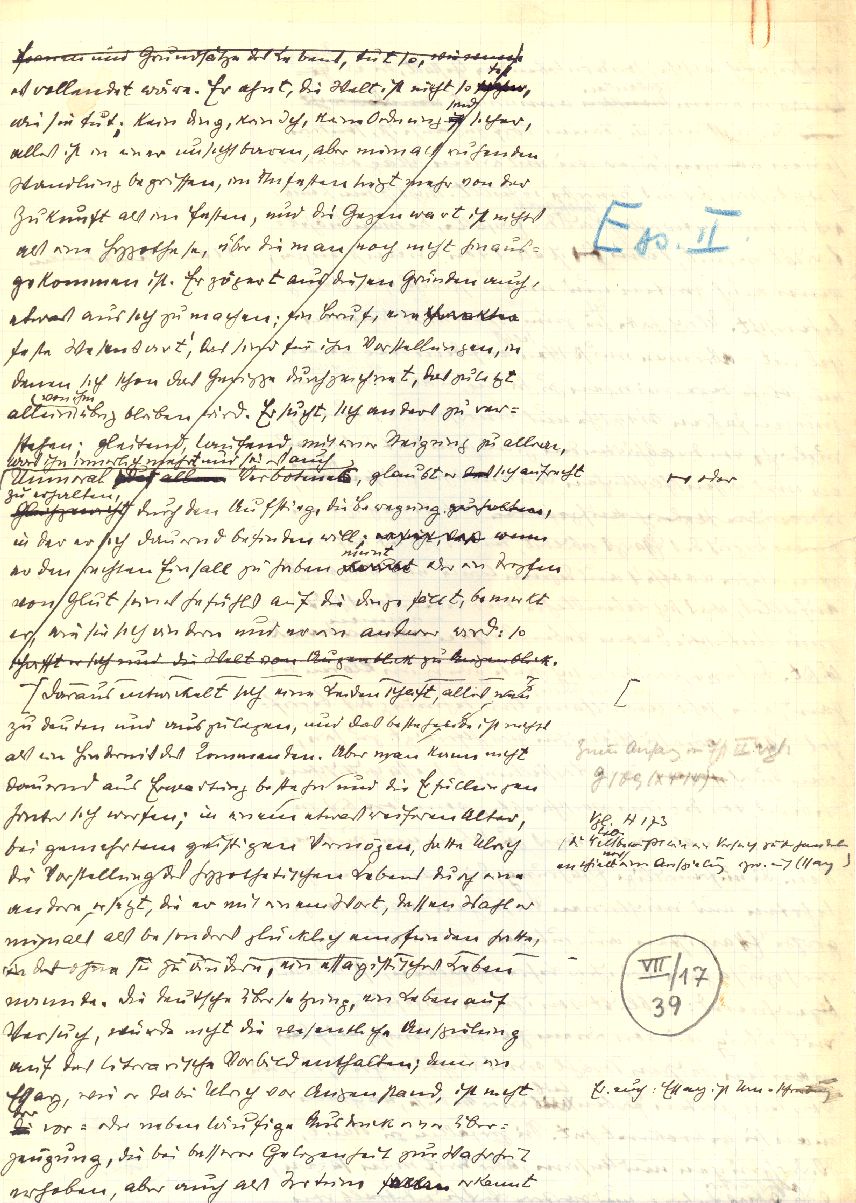 Formen und Grundsätze des Lebens, tut so,
es vollendet wäre. Er ahnt, die Welt ist nicht so fest,
wie sie tut; kein Ding, kein Ich, keine Ordnung sind sicher,
alles ist in einer unsichtbaren, aber niemals ruhenden
Wandlung begriffen, im Unfesten liegt mehr von der
Zukunft als im Festen, und die Gegenwart ist nichts
als eine Hypothese, über die man noch nicht hinaus=
gekommen ist. Er zögert aus diesen Gründen auch,
etwas aus sich zu machen; ein Beruf, eine Charakter
feste Wesensart, das sind für ihn Vorstellungen, in
denen sich schon das Gerippe durchzeichnet, das zuletzt
von ihm
allein übrig bleiben wird. Er sucht, sich anders zu ver=
stehen; gleitend, laufend, mit einer Neigung zu allem,
was ihn innerlich mehrt und sei es auch
Unmoral Verbotenes, glaubt er sich aufrecht
zu erhalten,
Gleichgewicht durch den Aufstieg, die Bewegung
in der er sich dauernd befinden will; wenn
er den rechten Einfall zu haben meint oder ein Tropfen
von Glut seines Gefühls auf die Dinge fällt, bemerkt
er, wie sie sich ändern und er ein anderer wird: so
schafft er sich und die Welt von Augenblick zu Augenblick.
[Daraus entwickelt sich eine Leidenschaft, alles
zu deuten und auszulegen, und das Bestehende ist nichts
als ein Hindernis des Kommenden. Aber man kann nicht
dauernd aus Erwartung bestehen und die Erfüllungen
hinter sich werfen; in einem etwas reiferen Alter,
bei gemehrtem geistigen Vermögen, hatte Ulrich
die Vorstellung des hypothetischen Lebens durch eine
andere ersetzt, die er mit einem Wort, dessen Wahl er
niemals als besonders glücklich empfunden hatte,
ohne sie zu ändern, ein essayistisches Leben
nannte. Die deutsche Übersetzung, ein Leben auf
Versuch, würde nicht die wesentliche Anspielung
auf das literarische Vorbild enthalten; denn ein
Essay, wie er dabei Ulrich vor Augen stand, ist nicht
der
vor= oder nebenläufige Ausdruck einer Über=
zeugung, die bei besserer Gelegenheit zur Wahrheit
erhoben, aber auch als Irrtum erkannt
Ess. II.
oder
[
Zum Anfang
Vgl. H 173
VII/17
39
E. auch: Essay ist